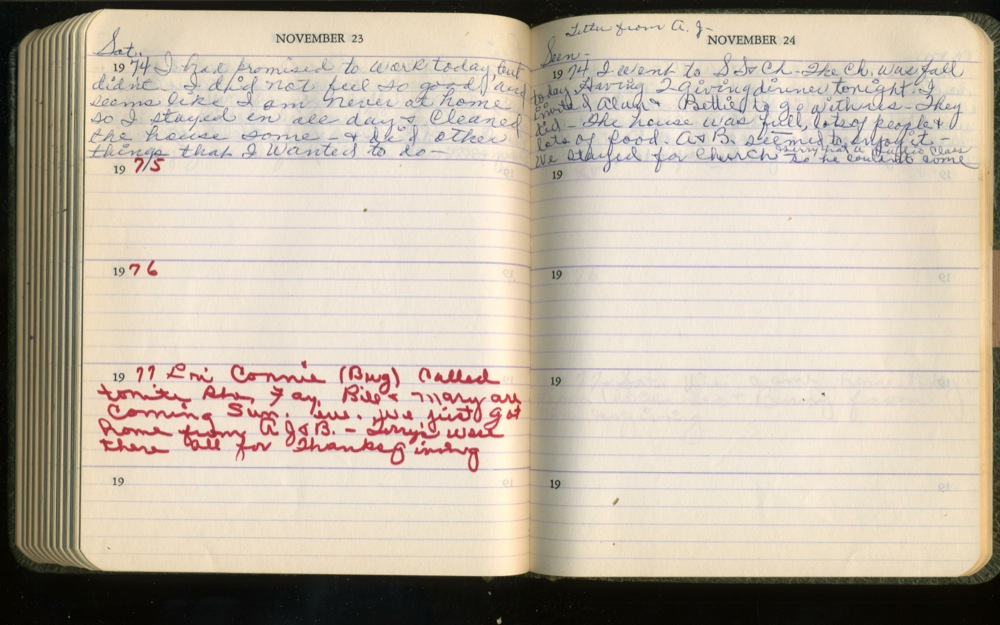 NOVEMBER 23
Sat.
1974 I had promised to work today, but
didn't. I did not feel so good, and
seems like I am never at home
so I stayed in all day & cleaned
the house some - & did other
things that I wanted to do -
1975
1976
1977 Fri Connie (Bug) called
tonite she, Fay, Bill & Mary are
coming Sun. eve. We just got
home from A J & B. - Terry's were
there all for Thanksgiving
19
Letter from A. J-
NOVEMBER 24
Sun-
1974 I went to S S & Ch - The Ch. was full
today. Having Tgiving dinner tonight. I
invited Alan & Bettie to go with us - They
did - The house was full, lots of people &
lots of food. A & B. seemed to enjoy it -
We stayed for church had a class
so he couldn't come
19
19
19
19